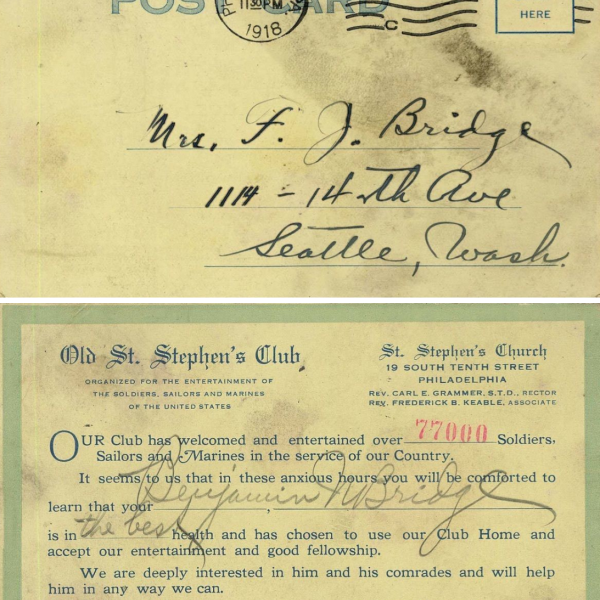 POST CARD
11 30 PM
1918
HERE
Mrs. F. J. Bridge
1114 - 14th Ave
Seattle, Wash.
Old St. Stephen's Club
ORGANIZED FOR THE ENTERTAINMENT OF
THE SOLDIERS, SAILORS AND MARINES
OF THE UNITED STATES
St. Stephen's Church
19 SOUTH TENTH STREET
PHILADELPHIA
REV. CARL E. GRAMMER, S.T.D., RECTOR
REV. FREDERICK B. KEABLE, ASSOCIATE
OUR Club has welcomed and entertained over 77000 Soldiers,
Sailors and Marines in the service of our Country.
It seems to us that in these anxious hours you will be comforted to
learn that your Benjamin N Bridge,
is in the best health and has chosen to use our Club Home and
accept our entertainment and good fellowship.
We are deeply interested in him and his comrades and will help
him in any way we can.